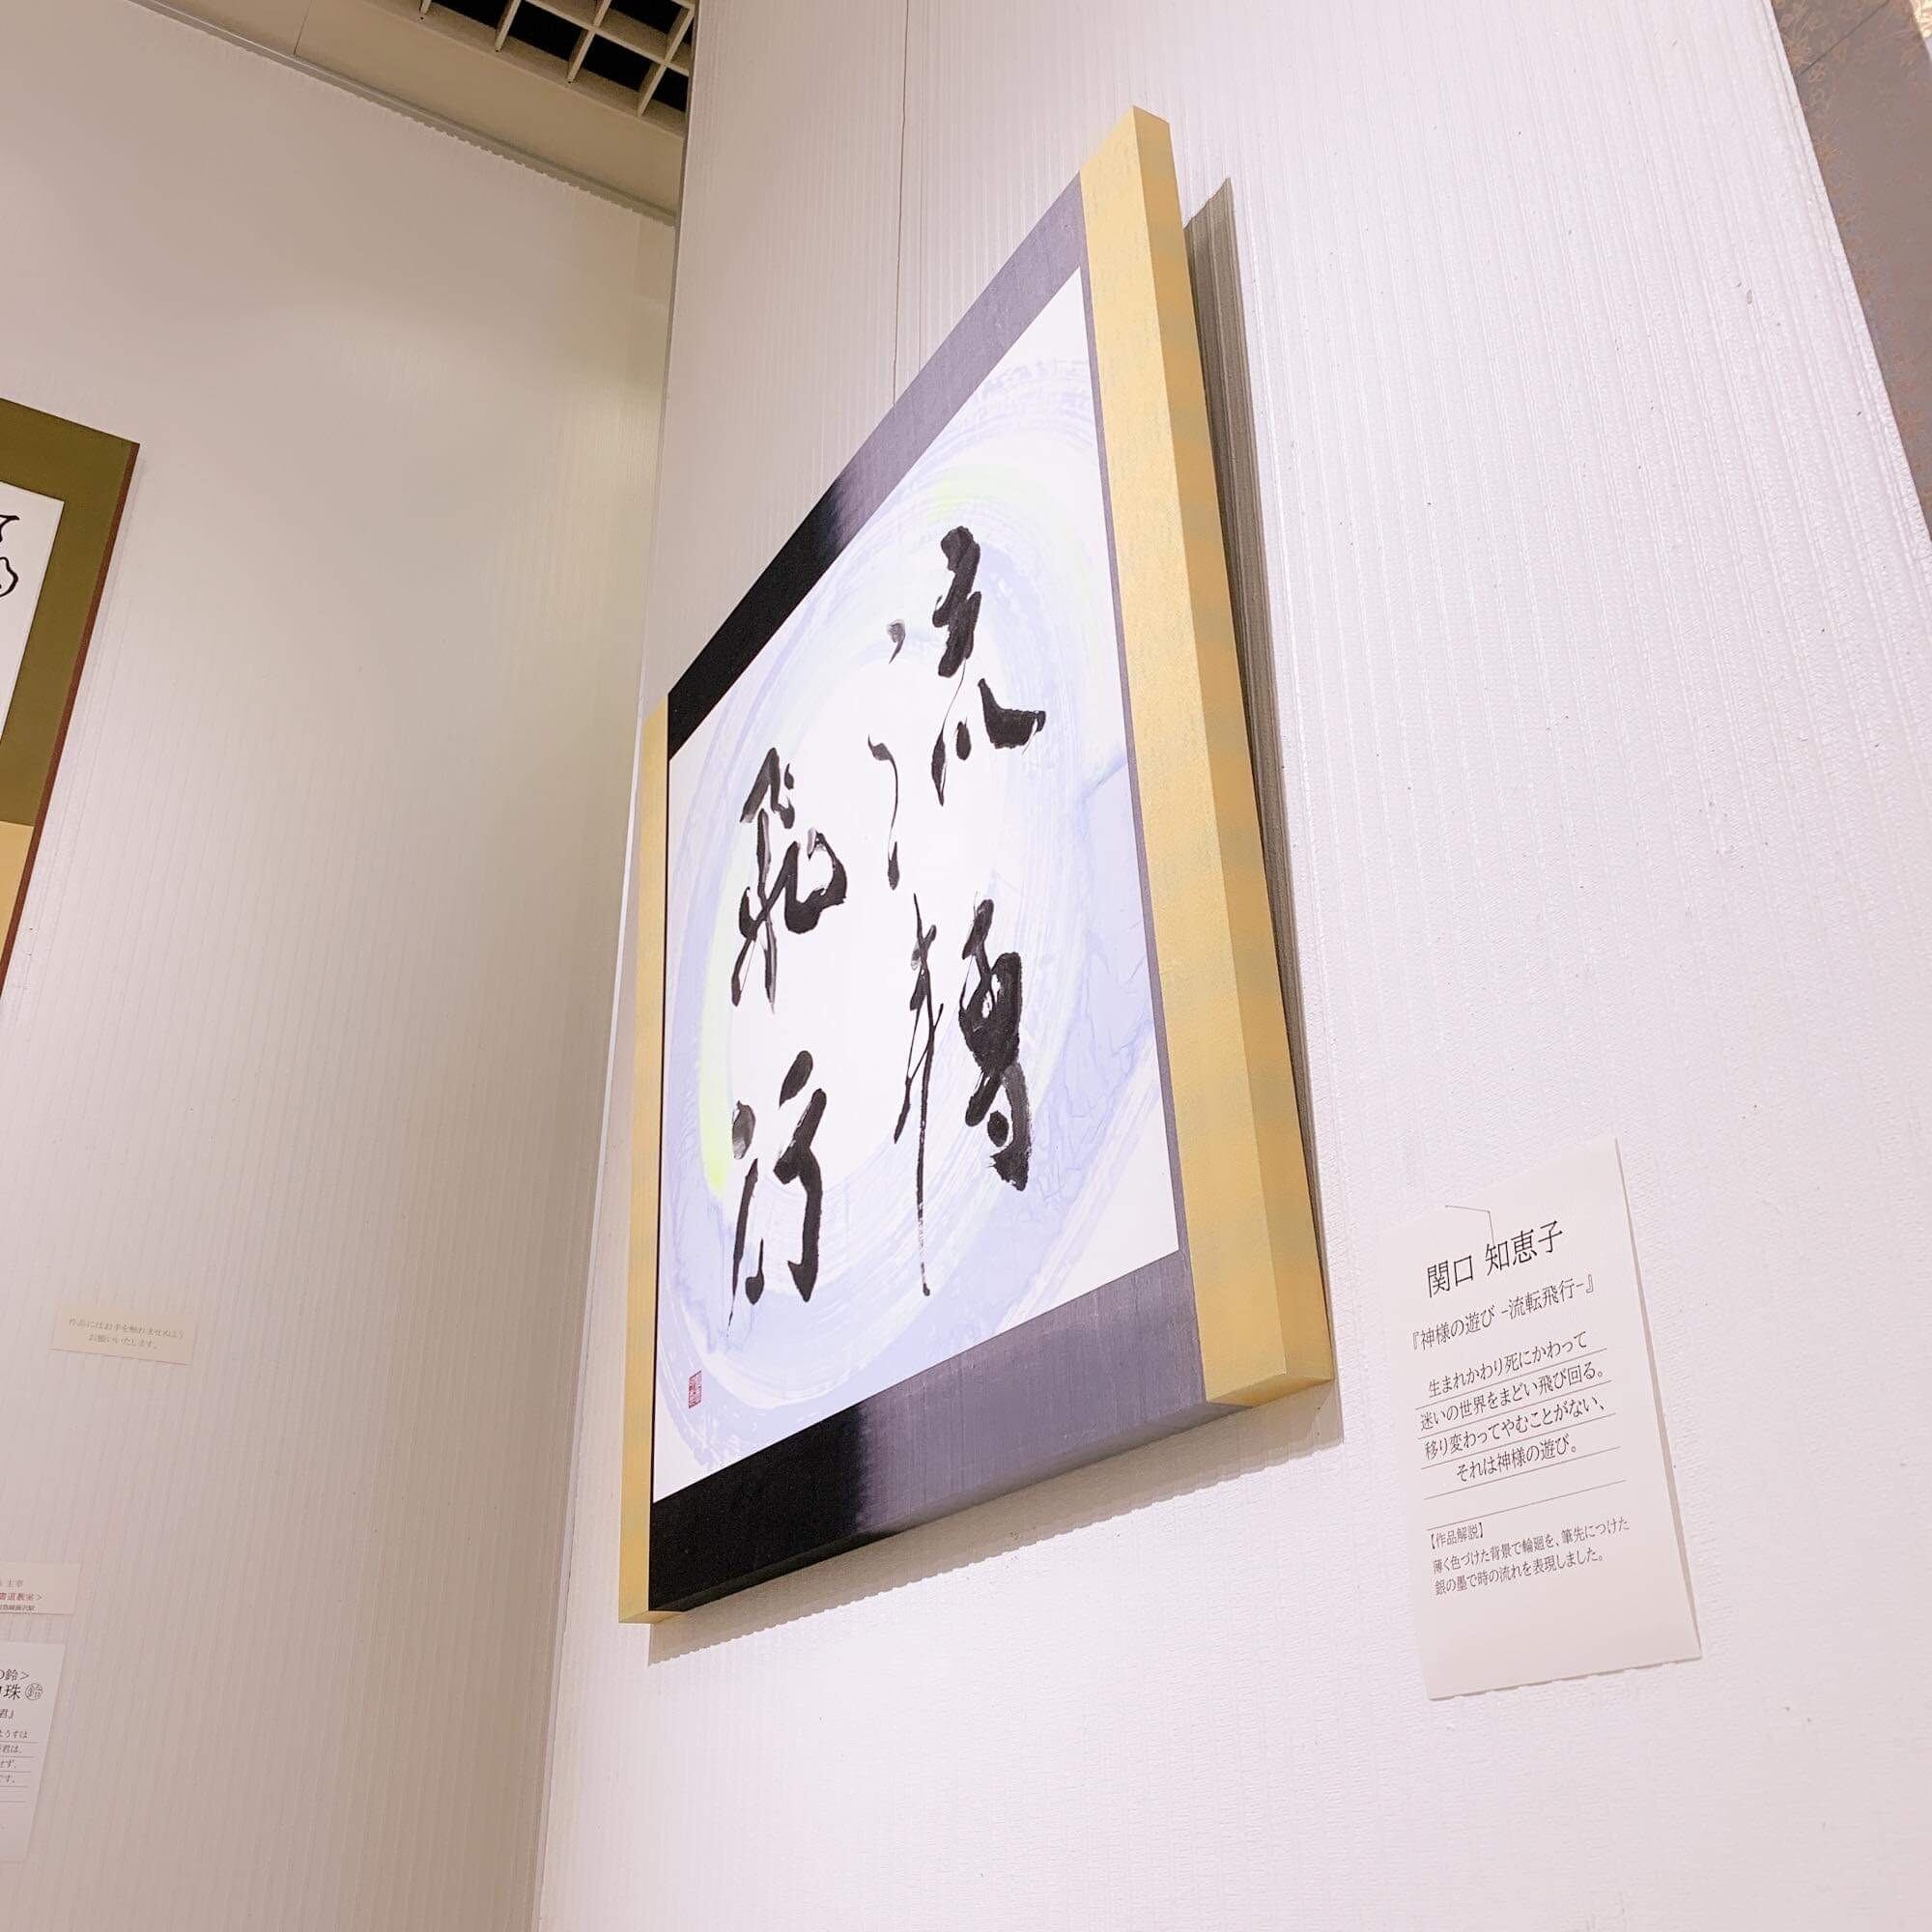 流轉
飛行
関口 知恵子
『神様の遊び -流転飛行-』
生まれかわり死にかわって
迷いの世界をまどい飛び回る。
移り変わってやむことがない、
それは神様の遊び。
【作品解説】
薄く色づけた背景で輪廻を、筆先につけた
銀の墨で時の流れを表現しました。
作品にはお手を触れませぬよう
お願いいたします。
主宰
書道教室＞
の鈴＞
珠
君』
ようすは
君は、
せず、
です。